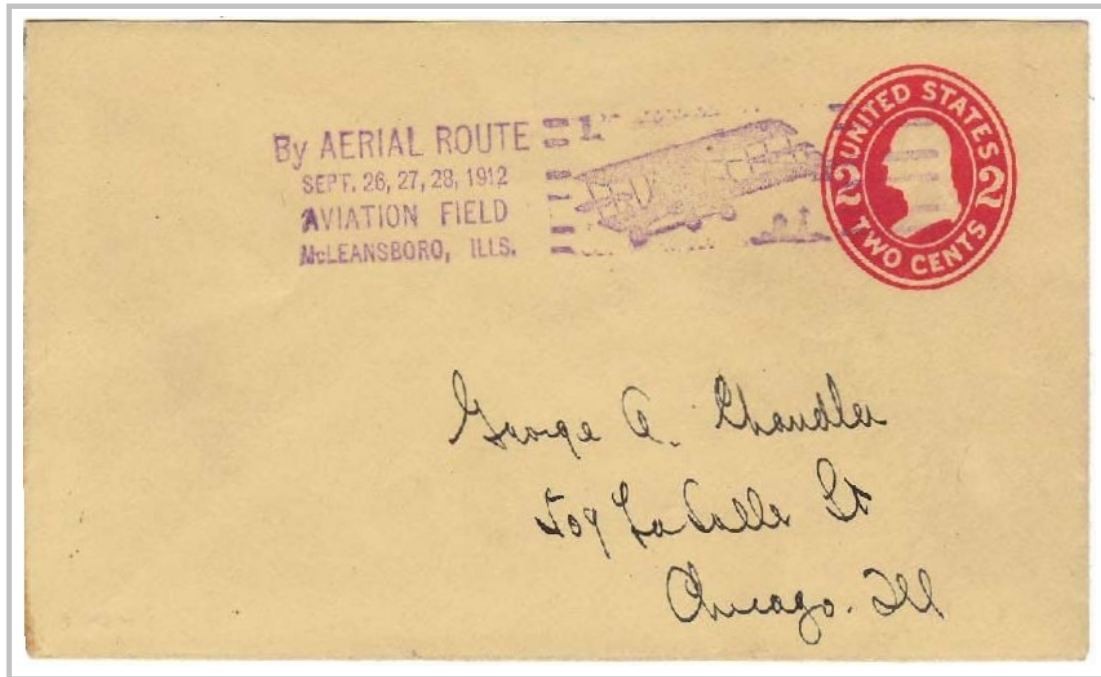 By AERIAL ROUTE
SEPT. 26, 27, 28, 1912
AVIATION FIELD
McLEANSBORO, ILLS.
UNITED STATES
2 2
TWO CENTS
George A. Chandler
509 La Salle St
Chicago. Ill